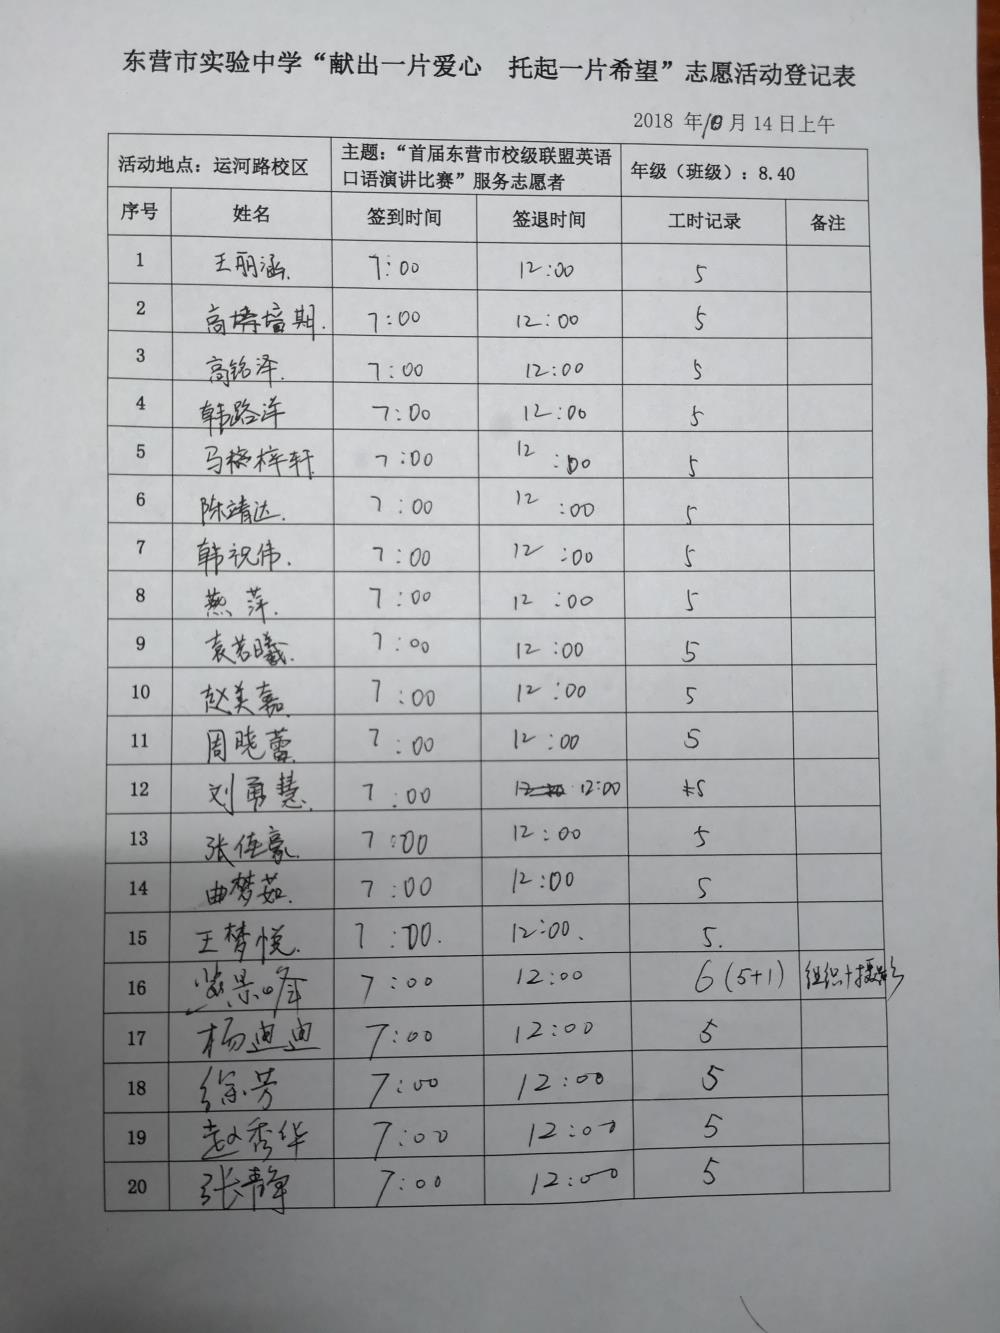 东营市实验中学“献出一片爱心 托起一片希望”志愿活动登记表
2018 年10月14日上午
活动地点：运河路校区 主题：“首届东营市校级联盟英语口语演讲比赛”服务志愿者 年级（班级）：8.40
序号 姓名 签到时间 签退时间 工时记录 备注
1 王丽涵. 7:00 12:00 5
2 高 期. 7:00 12:00 5
3 高铭泽. 7:00 12:00 5
4 韩路洋 7:00 12:00 5
5 马 梓轩 7:00 12:00 5
6 陈靖达. 7:00 12:00 5
7 韩祝伟. 7:00 12:00 5
8 燕萍. 7:00 12:00 5
9 袁若曦. 7:00 12:00 5
10 赵美嘉. 7:00 12:00 5
11 周晓蕾 7:00 12:00 5
12 刘勇慧. 7:00 12:00 5
13 张佳豪. 7:00 12:00 5
14 曲梦茹. 7:00 12:00 5
15 王梦悦. 7:00. 12:00. 5.
16 景峰 7:00 12:00 6(5+1) 组织+摄影
17 杨迪迪 7:00 12:00 5
18 徐芳 7:00 12:00 5
19 赵秀华 7:00 12:00 5
20 张静 7:00 12:00 5